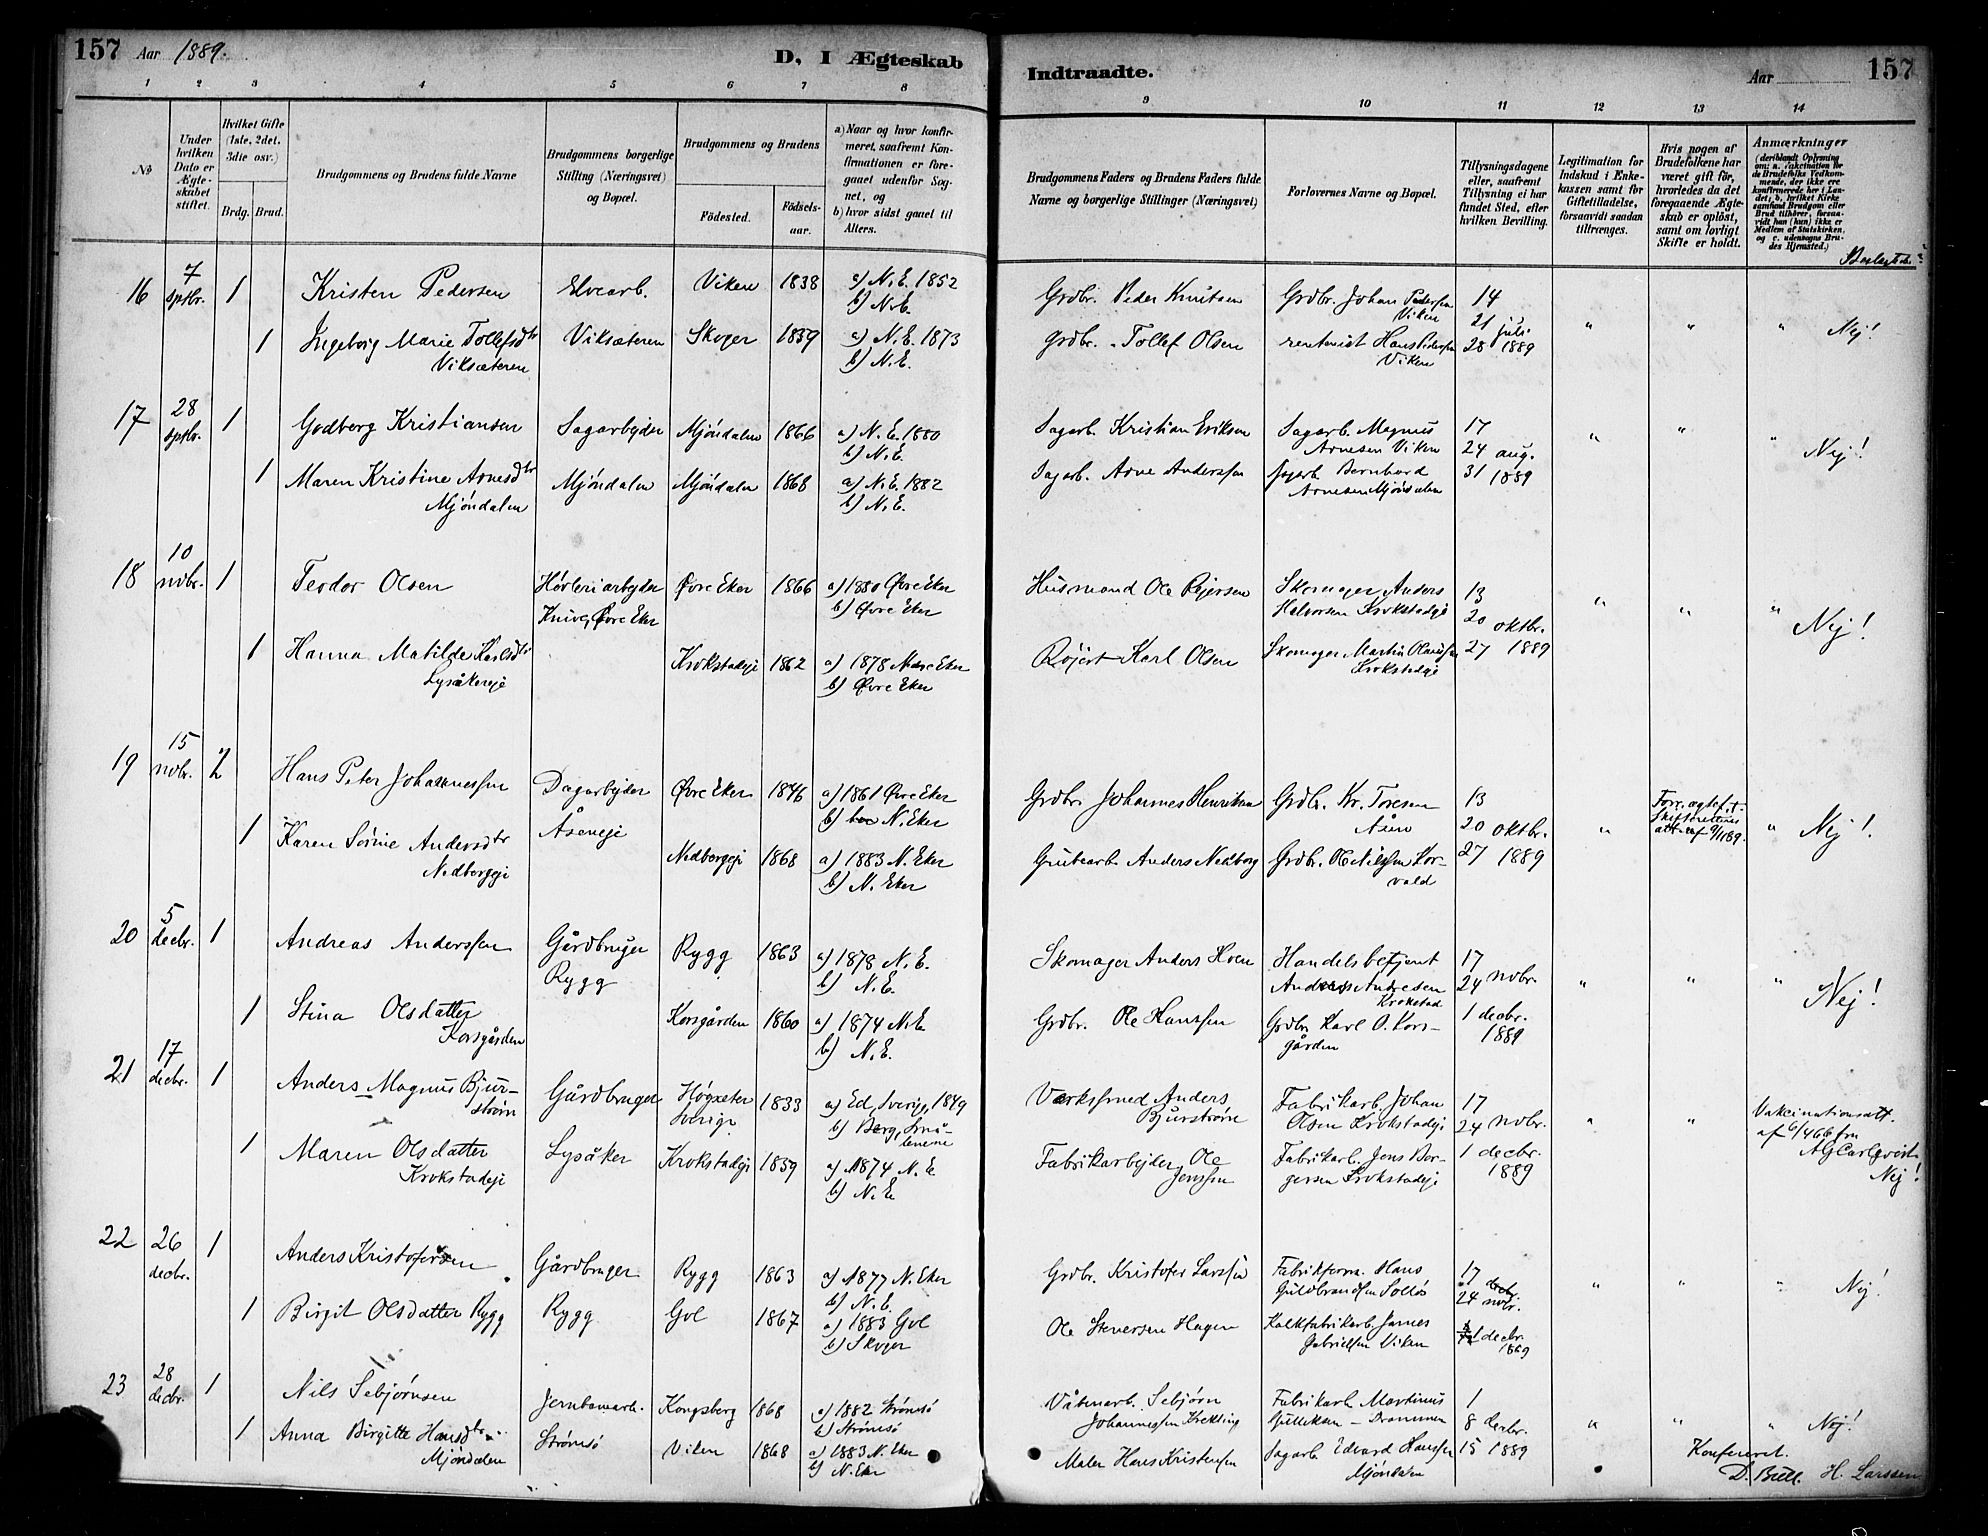 157 Aar 1889.
D, I Ægteskab
Indtraadte.
Aar 157
1 2 3 4 5 6 7 8
9 10 11 12 13 14
No
Under hvilken Dato er Ægteskabet stiftet.
Hvilket Gifte (1ste, 2det, 3die osv.)
Brdg. Brud.
Brudgommens og Brudens fulde Navne
Brudgommens borgerlige Stilling (Næringsvei) og Bopæl.
Brudgommens og Brudens
Fødested. Fødselsaar.
a) Naar og hvor konfirmeret, saafremt Konfirmationen er foregaaet udenfor Sognet, og
b) hvor sidst gaaet til Alters.
Brudgommens Faders og Brudens Faders fulde Navne og borgerlige Stillinger (Næringsvei)
Forlovernes Navne og Bopæl.
Tillysningsdagene eller, saafremt Tillysning ei har fundet Sted, efter hvilken Bevilling.
Legitimation for Indskud i Enkekassen samt for Giftetilladelse, forsaavidt saadan tiltrænges.
Hvis nogen af Brudefolkene har været gift før, hvorledes da det foregaaende Ægteskab er opløst, samt om lovligt Skifte er holdt.
Anmærkninger
(deriblandt Oplysning om: a. Vakcination for de Brudefolks Vedkommende, der ikke ere konfirmerede her i Landet; b. hvilket Kirkesamfund Brudgom eller Brud tilhører, forsaavidt han (hun) ikke er Medlem af Statskirken, og c. udensogns Brudes Hjemsted.)
16 7 sptbr. 1 Kristen Pedersen Elvearb. Viken 1838 a) N. E. 1852
b) N.E.
Grdbr. Peder Knutsen Grdbr. Johan Pedersen Viken 14
21 juli
1 Ingeborg Marie Tollefsdtr Viksæteren Viksæteren Skoger 1859 a) N. E. 1873
b) N. E.
Grdbr. Tollef Olsen rentenist Hans Pedersen Viken 28 1889 " " " Nej!
17 28 sptbr. 1 Godberg Kristiansen Sagarbejder Mjöndalen 1866 a) N. E. 1880
b) N. E.
Sagarb. Kristian Eriksen Sagarb. Magnus Arnesen Viken 17
24 aug.
1 Maren Kristine Arnesdtr Mjöndalen Mjöndalen Mjöndalen 1868 a) N. E. 1882
b) N. E.
Sagarb. Arne Anderssen Sagarb. Bernhard Arnesen Mjöndalen 31 1889 " " " Nej!
18 10 novbr. 1 Teodor Olsen Høvleriarbejder Knive, Øvre Eker Øvre Eker 1866 a) 1880 Øvre Eker
b) Øvre Eker
Husmand Ole Rejersen Skomager Anders Halvorsen Krokstadeje 13
20 oktbr.
1 Hanna Matilde Karlsdtr Lysåkereje Krokstadeje 1862 a) 1878 Nedre Eker
b) Øvre Eker
Röjert Karl Olsen Skomager Martin Olaussen Krokstadeje 27 1889 " " " Nej!
19 15 novbr. 2 Hans Peter Johannessen Dagarbejder Åseneje Øvre Eker 1846 a) 1861 Øvre Eker
b) N. Eker
Grdbr. Johannes Henriksen Grdbr. Kr. Toresen Åsen 13
20 oktbr.
1 Karen Sörine Andersdtr Nedbergeje Nedbergeje 1868 a) 1883 N. Eker
b) N. Eker
Grubearb. Anders Nedberg Grdbr. Ole Nilssen Korvald 27 1889 " Forr. ægtef. † Skifterettens att. af 9/11 89. " Nej!
20 5 decbr. 1 Andreas Anderssen Gårdbruger Rygg Rygg 1863 a) 1878 N. E.
b) N. E.
Skomager Anders Hoen Handelsbetjent Anders Andresen Krokstad 17
24 novbr.
1 Stina Olsdatter Korsgården Korsgården 1860 a) 1874 N. E.
b) N. E.
Grdbr. Ole Hanssen Grdbr. Karl O. Korsgården 1 decbr. 1889 " " " Nej!
21 17 decbr. 1 Anders Magnus Bjurström Gårdbruger Högsæter Sverige 1833 a) Ed, Sverige, 1849
b) Berg, Smålenene
Værksmed Anders Bjurström Fabrikarb. Johan Olsen Krokstadeje 17
24 novbr.
1 Maren Olsdatter Krokstadeje Lysåker Krokstadeje 1859 a) 1874 N. E.
b) N. E.
Fabrikarbejder Ole Jenssen Fabrikarb. Jens Borgersen Krokstadeje 1 decbr. 1889 " " Vakcinationsatt. af 6/4 66 fra A G Carlqvist. Nej!
22 26 decbr. 1 Anders Kristofersen Gårdbruger Rygg 1863 a) 1877 N. Eker
b) N. E.
Grdbr. Kristofer Larssen Fabrikform. Hans Guldbrandsen Solløs 17
24 novbr.
1 Birgit Olsdatter Rygg Rygg Gol 1867 a) 1883 Gol
b) Skoger
Ole Steversen Hagen Kalkfabrikarb. James Gabrielsen Viken 1 decbr. 1889 " " " Nej!
23 28 decbr. 1 Nils Sebjörnsen Jernbanearb. Kongsberg 1868 a) 1882 Strömsö
b) Strömsö
Våbenarb. Sebjörn Johannessen Krekling Fabrikarb. Martinius Gulliksen – Drammen 1
8 decbr.
1 Anna Birgitte Hansdtr Mjöndalen Strömsö Viken 1868 a) 1883 N. Eker
b) N. Eker
Maler Hans Kristensen Sagarb. Edvard Hanssen Mjöndalen 15 1889 " " " Nej!
Konfereret.
D. Bull. H. Larssen